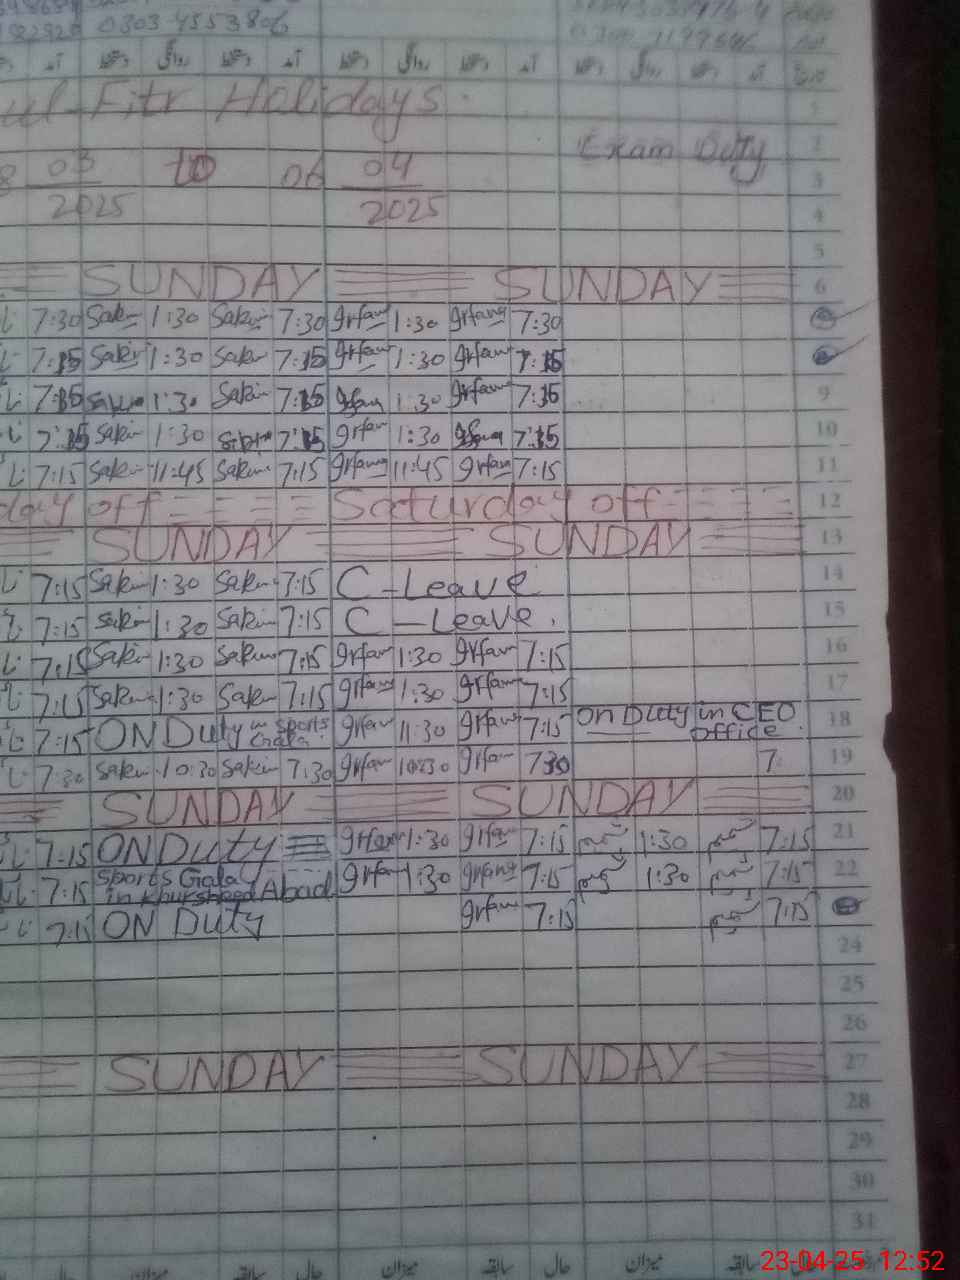 0303-4553806
آمد دستخط روانگی دستخط آمد دستخط روانگی دستخط آمد دستخط روانگی دستخط آمد تاریخ
ul-Fitr Holidays. 1
Exam Duty 2
03 to 06 04 3
2025 2025 4
5
SUNDAY SUNDAY 6
7:30 Sakin 1:30 Sakin 7:30 Irfan 1:30 Irfan 7:30
7:15 Sakin 1:30 Sakin 7:15 Irfan 1:30 Irfan 7:15
7:15 Sakin 1:30 Sakin 7:15 Irfan 1:30 Irfan 7:15 9
7:15 Sakin 1:30 7:15 Irfan 1:30 Irfan 7:15 10
7:15 Sakin 11:45 Sakin 7:15 Irfan 11:45 Irfan 7:15 11
day off Saturday off 12
SUNDAY SUNDAY 13
7:15 Sakin 1:30 Sakin 7:15 C-Leave 14
7:15 Sakin 1:30 Sakin 7:15 C-Leave. 15
7:15 Sakin 1:30 Sakin 7:15 Irfan 1:30 Irfan 7:15 16
7:15 Sakin 1:30 Sakin 7:15 Irfan 1:30 Irfan 7:15 17
7:15 ON Duty in Sports Gala Irfan 11:30 Irfan 7:15 on Duty in CEO office. 18
7:30 Sakin 10:30 Sakin 7:30 Irfan 10:30 Irfan 7:30 7: 19
SUNDAY SUNDAY 20
7:15 ON Duty Irfan 1:30 Irfan 7:15 1:30 7:15 21
7:15 Sports Gala in Khursheed Abad Irfan 1:30 Irfan 7:15 1:30 7:15 22
7:15 ON Duty Irfan 7:15 7:15
24
25
26
SUNDAY SUNDAY 27
28
29
30
31
حال سابقہ میزان حال سابقہ میزان حال سابقہ میزان
23-04-25 12:52